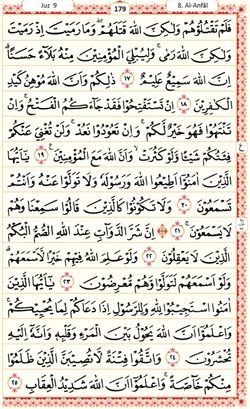 Juz 9 179 8. Al-Anfâl
فَلَمْ تَقْتُلُوْهُمْ وَلٰكِنَّ اللّٰهَ قَتَلَهُمْ ۖ وَمَا رَمَيْتَ اِذْ رَمَيْتَ
وَلٰكِنَّ اللّٰهَ رَمٰىۚ وَلِيُبْلِيَ الْمُؤْمِنِيْنَ مِنْهُ بَلَاۤءً حَسَنًاۗ
اِنَّ اللّٰهَ سَمِيْعٌ عَلِيْمٌ ١٧ ذٰلِكُمْ وَاَنَّ اللّٰهَ مُوْهِنُ كَيْدِ
الْكٰفِرِيْنَ ١٨ اِنْ تَسْتَفْتِحُوْا فَقَدْ جَاۤءَكُمُ الْفَتْحُۚ وَاِنْ
تَنْتَهُوْا فَهُوَ خَيْرٌ لَّكُمْۚ وَاِنْ تَعُوْدُوْا نَعُدْۚ وَلَنْ تُغْنِيَ عَنْكُمْ
فِئَتُكُمْ شَيْـًٔا وَّلَوْ كَثُرَتْۙ وَاَنَّ اللّٰهَ مَعَ الْمُؤْمِنِيْنَ ١٩ يٰٓاَيُّهَا
الَّذِيْنَ اٰمَنُوْٓا اَطِيْعُوا اللّٰهَ وَرَسُوْلَهٗ وَلَا تَوَلَّوْا عَنْهُ وَاَنْتُمْ
تَسْمَعُوْنَ ٢٠ وَلَا تَكُوْنُوْا كَالَّذِيْنَ قَالُوْا سَمِعْنَا وَهُمْ
لَا يَسْمَعُوْنَ ٢١ اِنَّ شَرَّ الدَّوَاۤبِّ عِنْدَ اللّٰهِ الصُّمُّ الْبُكْمُ
الَّذِيْنَ لَا يَعْقِلُوْنَ ٢٢ وَلَوْ عَلِمَ اللّٰهُ فِيْهِمْ خَيْرًا لَّاَسْمَعَهُمْۗ
وَلَوْ اَسْمَعَهُمْ لَتَوَلَّوْا وَّهُمْ مُّعْرِضُوْنَ ٢٣ يٰٓاَيُّهَا الَّذِيْنَ
اٰمَنُوا اسْتَجِيْبُوْا لِلّٰهِ وَلِلرَّسُوْلِ اِذَا دَعَاكُمْ لِمَا يُحْيِيْكُمْۚ
وَاعْلَمُوْٓا اَنَّ اللّٰهَ يَحُوْلُ بَيْنَ الْمَرْءِ وَقَلْبِهٖ وَاَنَّهٗٓ اِلَيْهِ
تُحْشَرُوْنَ ٢٤ وَاتَّقُوْا فِتْنَةً لَّا تُصِيْبَنَّ الَّذِيْنَ ظَلَمُوْا
مِنْكُمْ خَاۤصَّةًۚ وَاعْلَمُوْٓا اَنَّ اللّٰهَ شَدِيْدُ الْعِقَابِ ٢٥